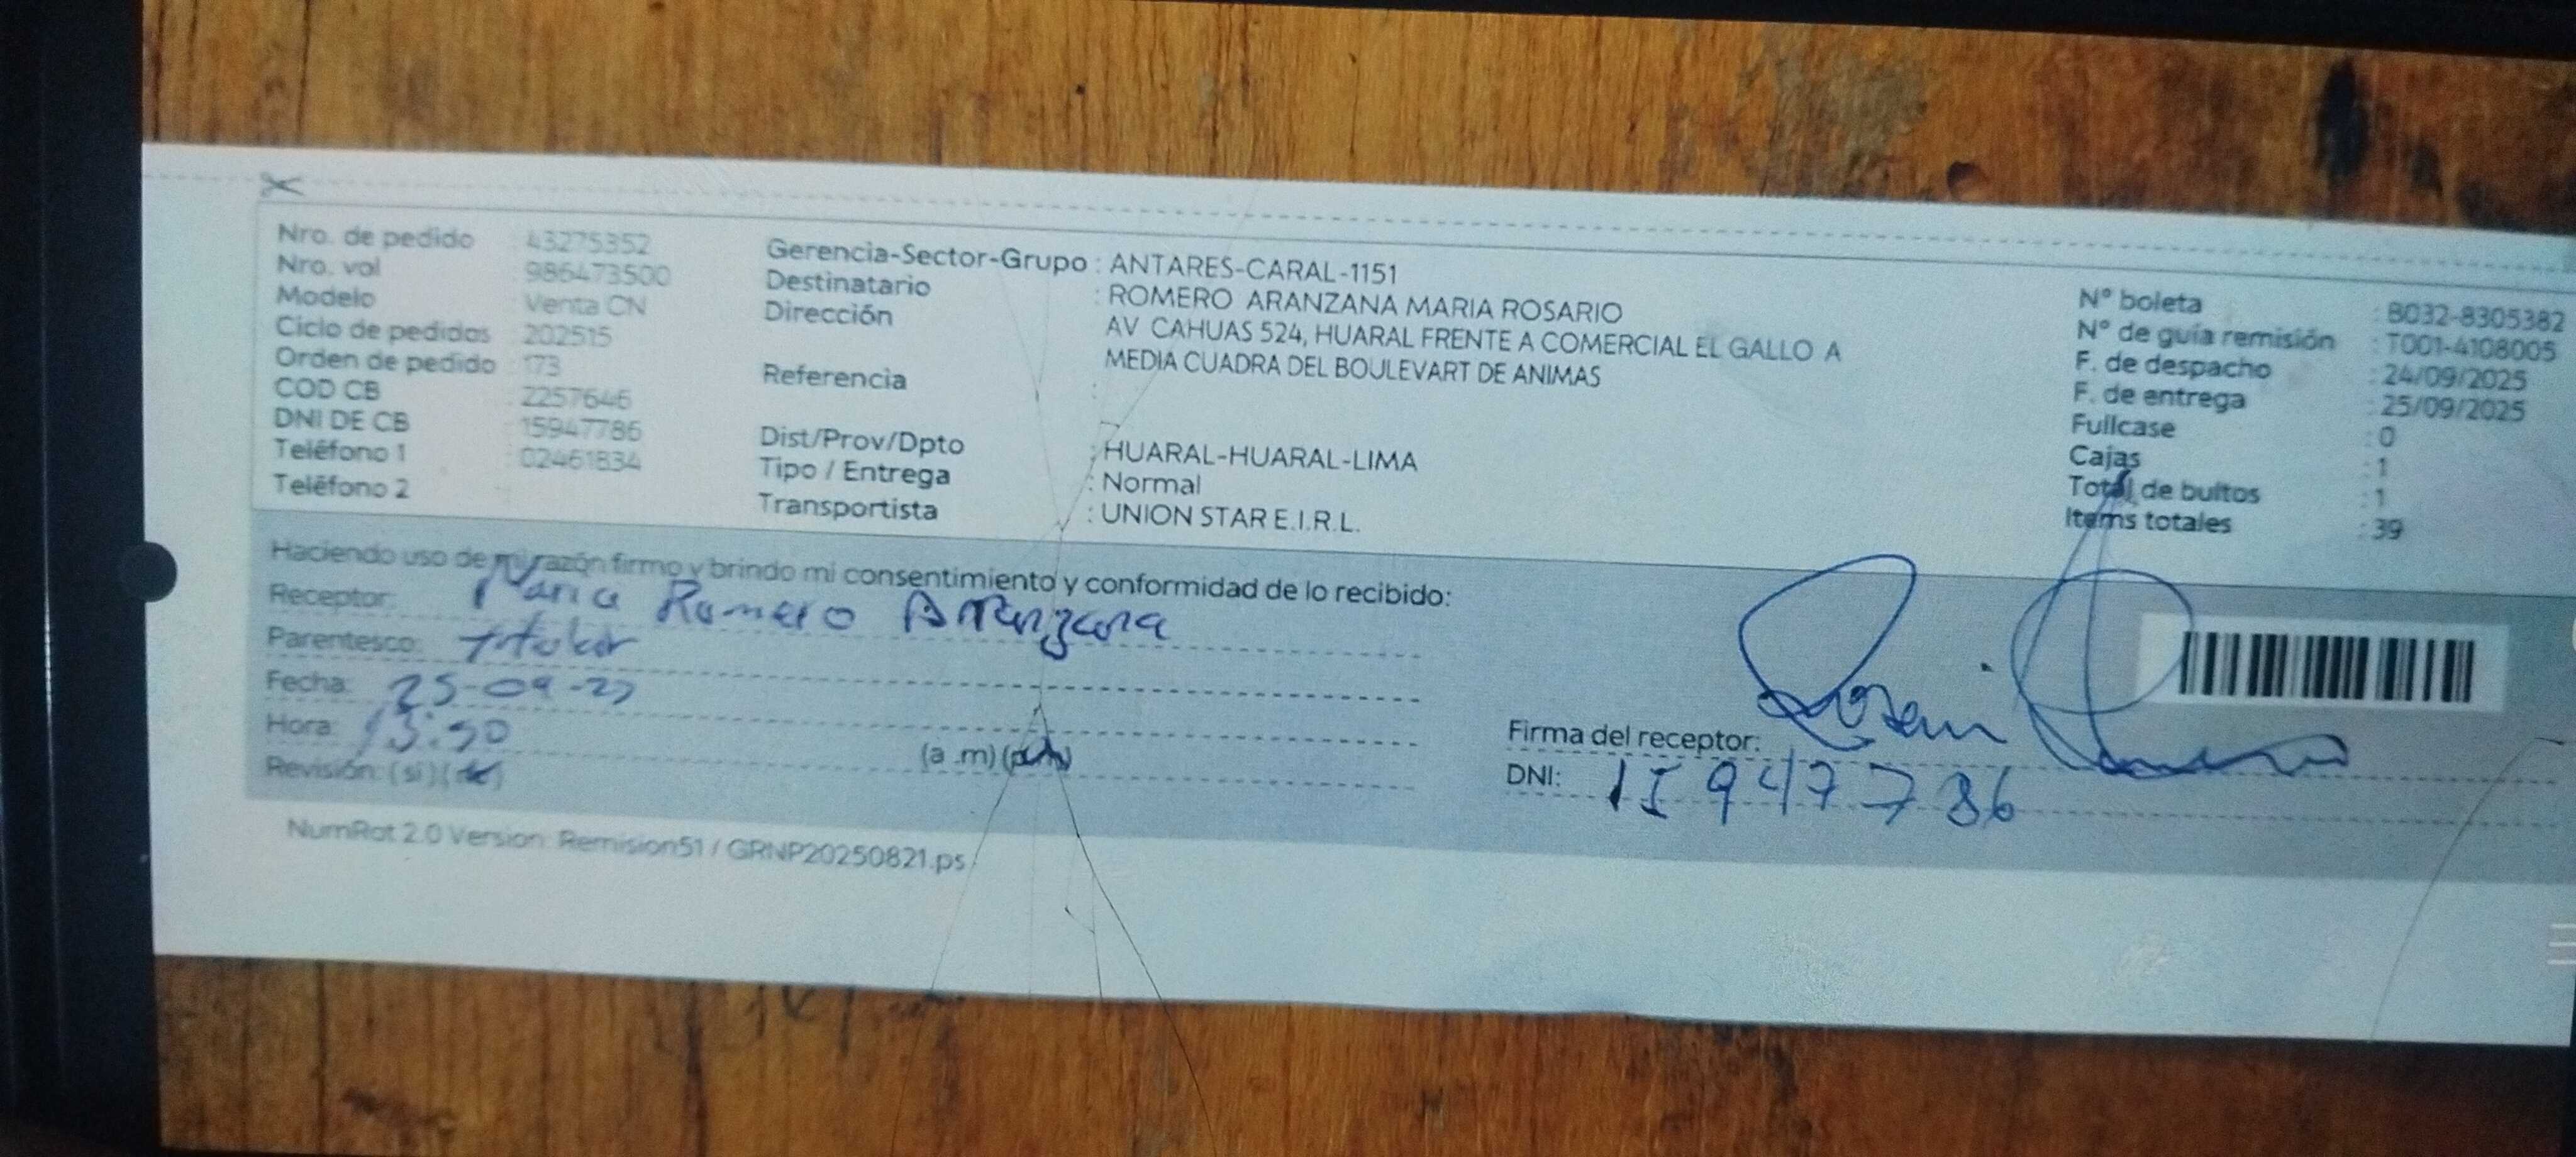 Nro. de pedido : 43275352
Nro. vol : 986473500
Modelo : Venta CN
Ciclo de pedidos : 202515
Orden de pedido : 173
COD CB : 2257646
DNI DE CB : 15947786
Teléfono 1 : 02461834
Teléfono 2
Gerencia-Sector-Grupo : ANTARES-CARAL-1151
Destinatario : ROMERO ARANZANA MARIA ROSARIO
Dirección AV CAHUAS 524, HUARAL FRENTE A COMERCIAL EL GALLO A
MEDIA CUADRA DEL BOULEVART DE ANIMAS
Referencia :
Dist/Prov/Dpto : HUARAL-HUARAL-LIMA
Tipo / Entrega : Normal
Transportista : UNION STAR E.I.R.L.
N° boleta : B032-8305382
N° de guía remisión : T001-4108005
F. de despacho : 24/09/2025
F. de entrega : 25/09/2025
Fullcase : 0
Cajas : 1
Total de bultos : 1
Items totales : 39
Haciendo uso de mi razón firmo y brindo mi consentimiento y conformidad de lo recibido:
Receptor: Maria Romero Arranzana
Parentesco: titular
Fecha: 25-09-25
Hora: 13:50 (a .m) (p.m)
Revisión: (si) (no)
Firma del receptor:
DNI: 15947786
NumRot 2.0 Version: Remision51 / GRNP20250821.ps